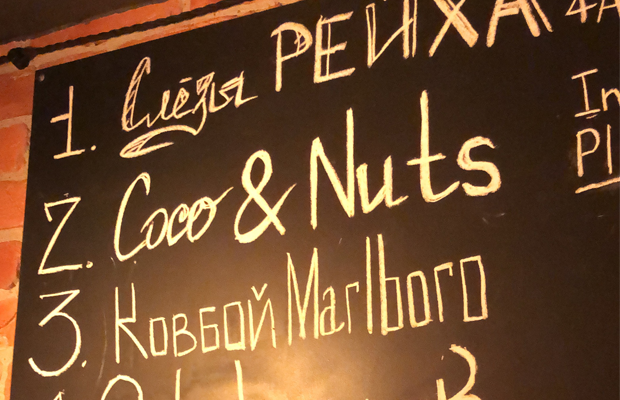 1. Слёзы РЕЙХА
2. Coco & Nuts
In
Pl
3. Ковбой Marlboro